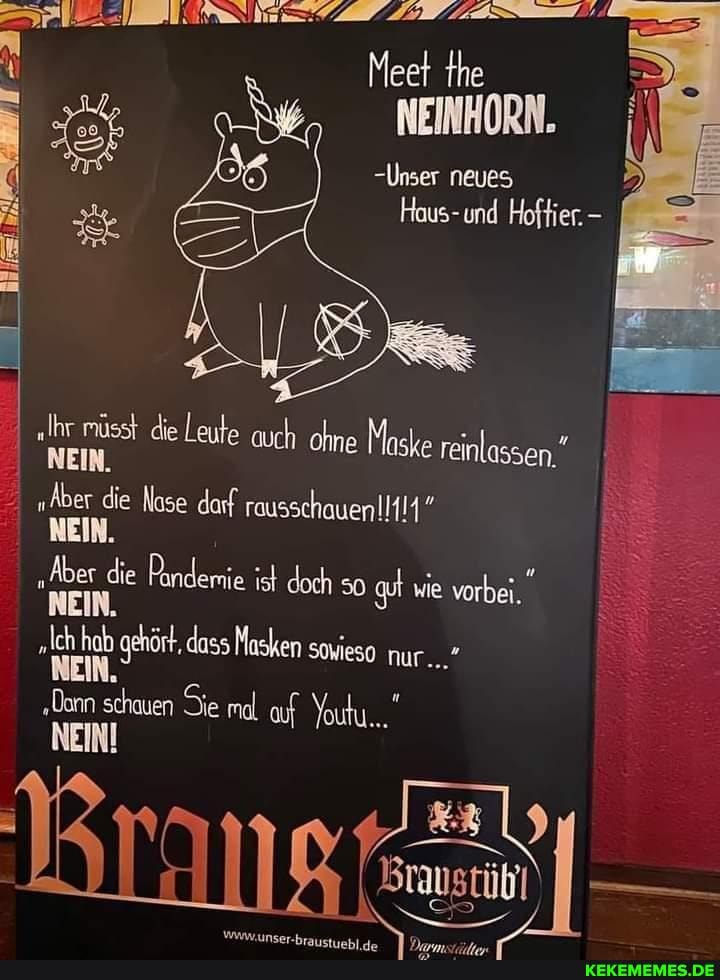 Meet the
NEINHORN.
-Unser neues
Haus- und Hoftier.-
„Ihr müsst die Leute auch ohne Maske reinlassen."
NEIN.
„Aber die Nase darf rausschauen!!1!1"
NEIN.
„Aber die Pandemie ist doch so gut wie vorbei."
NEIN.
„Ich hab gehört, dass Masken sowieso nur..."
NEIN.
„Dann schauen Sie mal auf Youtu..."
NEIN!
Braust 'l
Braustüb'l
www.unser-braustuebl.de
Darmstädter
KEKEMEMES.DE